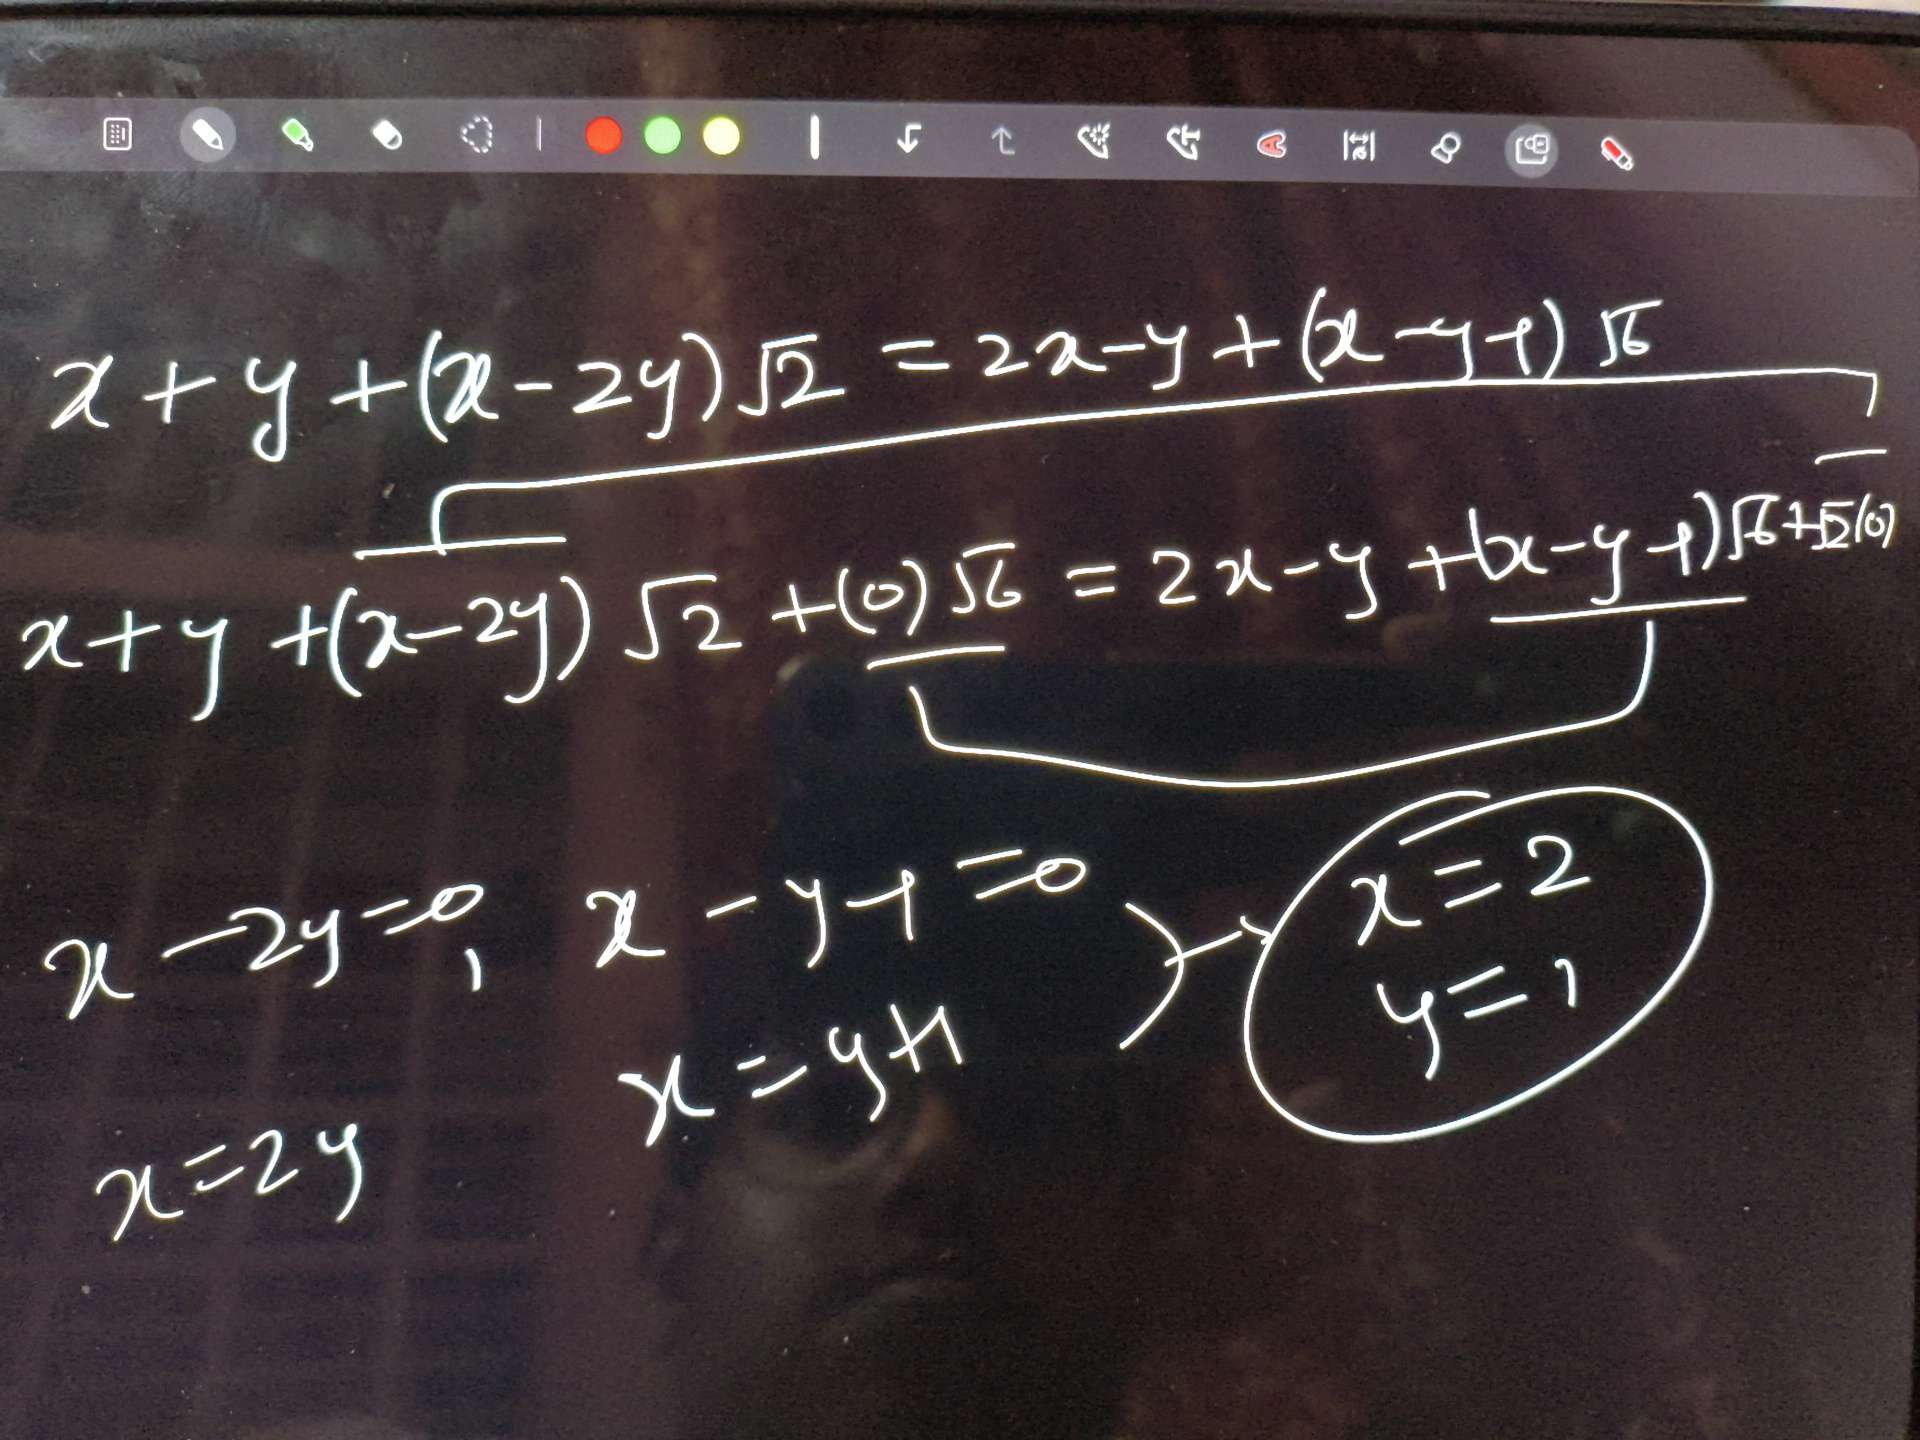 x + y + (x - 2y) √2 = 2x - y + (x - y - 1) √6
x + y + (x - 2y) √2 + (0) √6 = 2x - y + (x - y - 1) √6 + √2 (0)
x - 2y = 0, x - y - 1 = 0
x = 2y x = y + 1
x = 2
y = 1